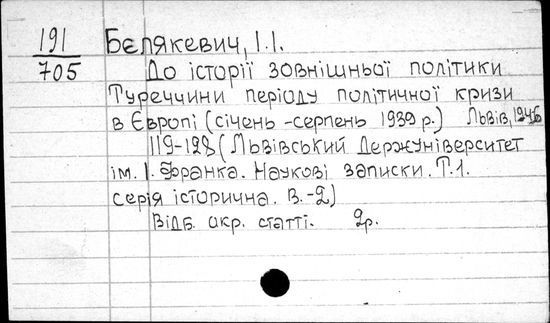 191
705
Бєлякевич, І.І.
До історії зовнішньої політики
Туреччини періоду політичної кризи
в Європі (січень-серпень 1939 р.) Львів, 1946
119-128 (Львівський Держуніверситет
ім. І. Франка. Наукові записки. Т.1.
серія історична. В.-2)
Відб. окр. статті. 2р.